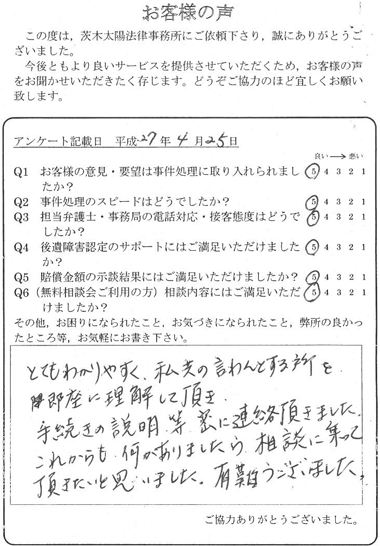 お客様の声
この度は，茨木太陽法律事務所にご依頼下さり，誠にありがとうご
ざいました。
今後ともより良いサービスを提供させていただくため，お客様の声
をお聞かせいただきたく存じます。どうぞご協力のほど宜しくお願い
致します。
アンケート記載日 平成27年4月25日
良い → 悪い
Q1 お客様の意見・要望は事件処理に取り入れられまし 5 4 3 2 1
たか？
Q2 事件処理のスピードはどうでしたか？ 5 4 3 2 1
Q3 担当弁護士・事務局の電話対応・接客態度はどうで 5 4 3 2 1
したか？
Q4 後遺障害認定のサポートにはご満足いただけました 5 4 3 2 1
か？
Q5 賠償金額の示談結果にはご満足いただけましたか？ 5 4 3 2 1
Q6（無料相談会ご利用の方）相談内容にはご満足いただ 5 4 3 2 1
けましたか？
その他，お困りになられたこと，お気づきになられたこと，弊所の良かっ
たところ等，お気軽にお書き下さい。
とてもわかりやすく、私共の言わんとする所を
即座に理解して頂き
手続きの説明等 密に連絡頂きました。
これからも何かありましたら相談に乗って
頂きたいと思いました。有難うございました。
ご協力ありがとうございました。